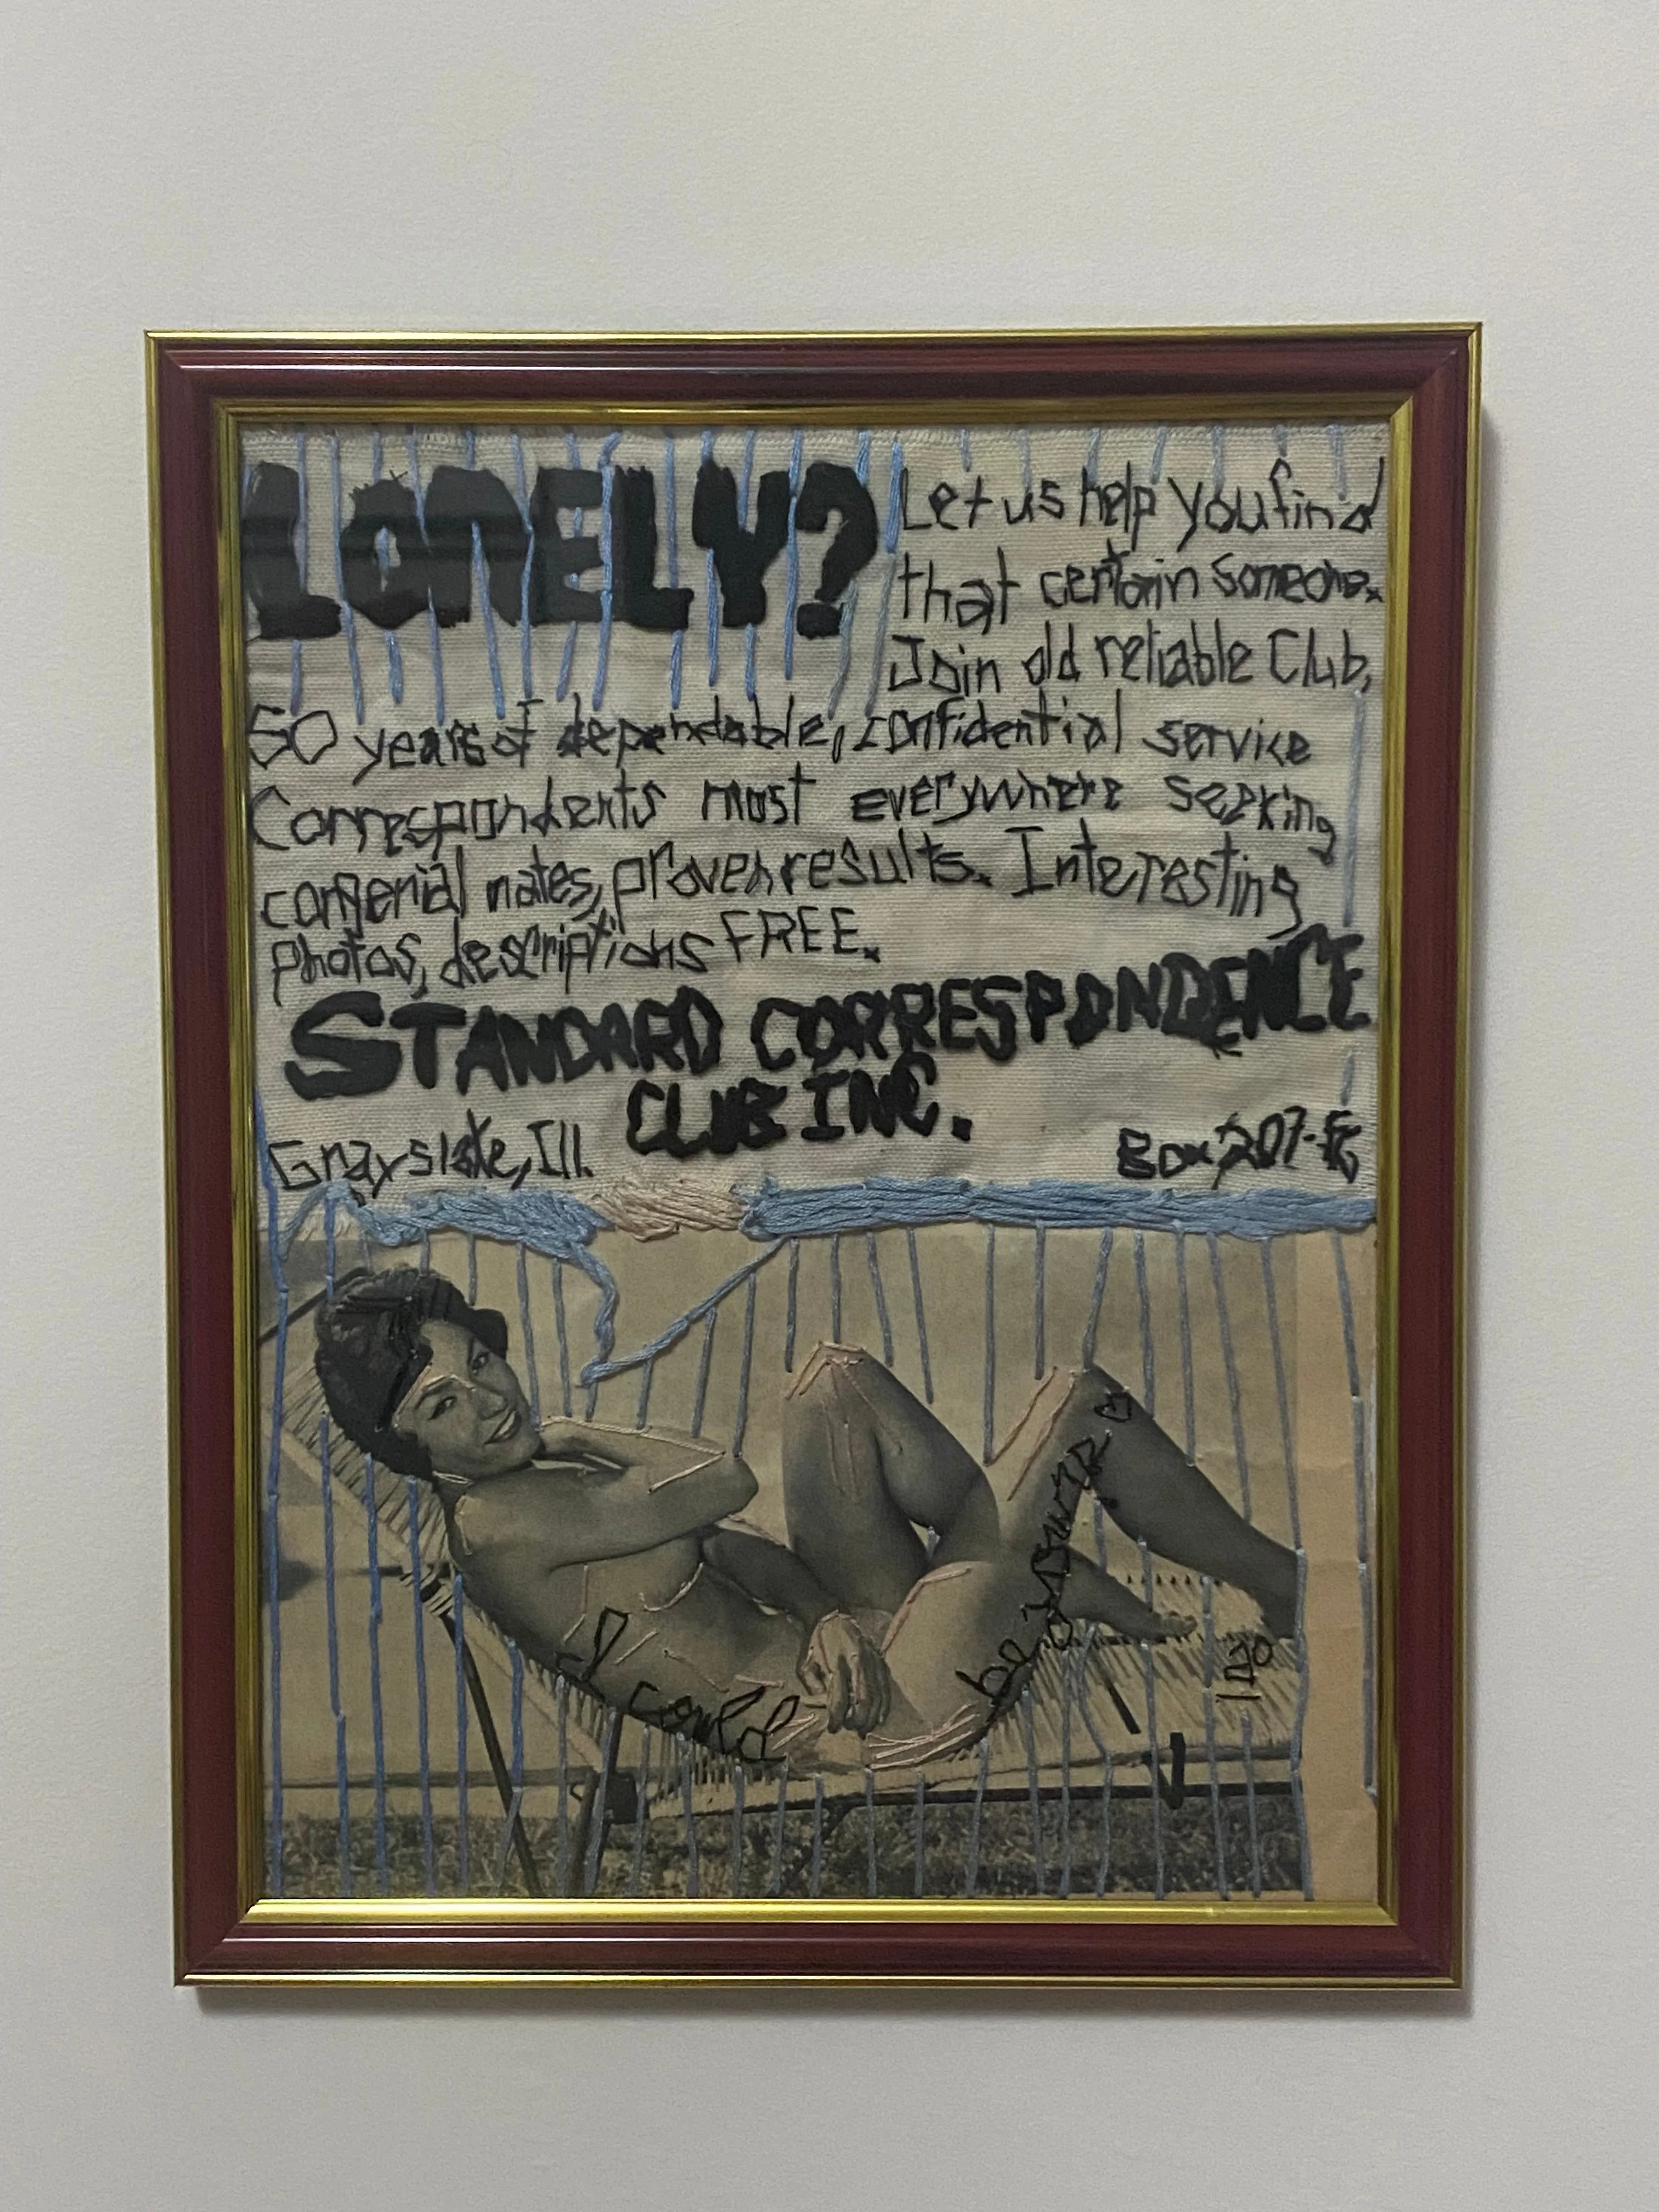 LONELY? Let us help you find
that certain someone.
Join old reliable Club,
50 years of dependable, confidential service
Correspondents most everywhere seeking
congenial mates, proven results. Interesting
photos, descriptions FREE.
STANDARD CORRESPONDENCE
CLUB INC.
Grayslake, Ill. Box 207-
I could
be